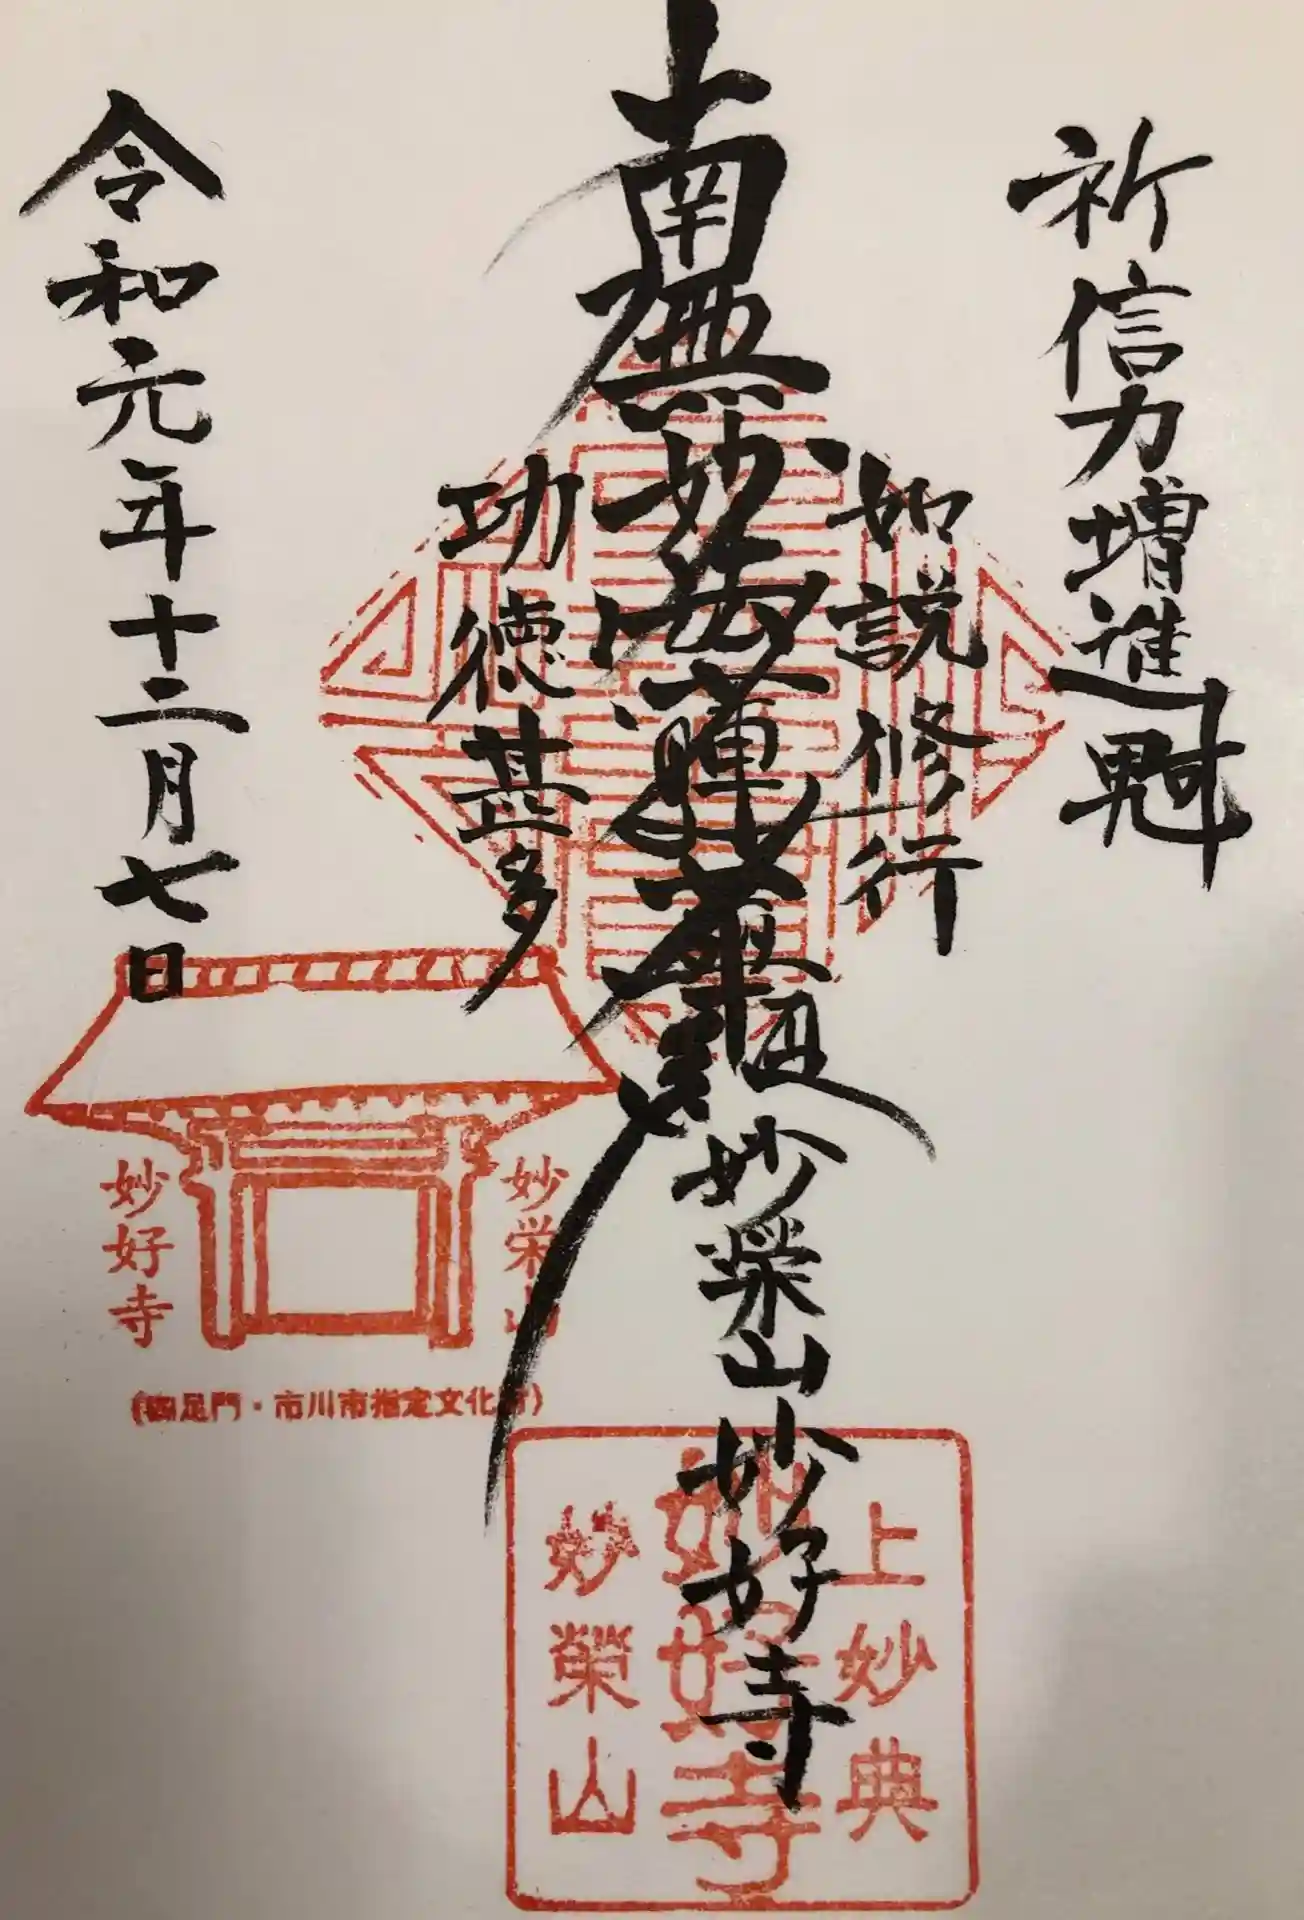 祈信力増進
如説修行
南無妙法蓮華経
妙栄山
妙好寺
功徳甚多
令和元年十二月七日
妙栄山
妙好寺
(四足門・市川市指定文化財)
上妙典
妙好寺
妙榮山